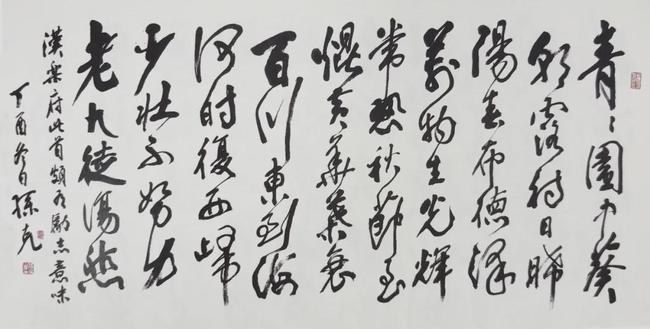 青〻園中葵
朝露待日晞
陽春布德澤
萬物生光輝
常恐秋節至
焜黃華葉衰
百川東到海
何時復西歸
少壯不努力
老大徒傷悲
漢樂府此首頗有勵志意味
丁酉冬日孫克